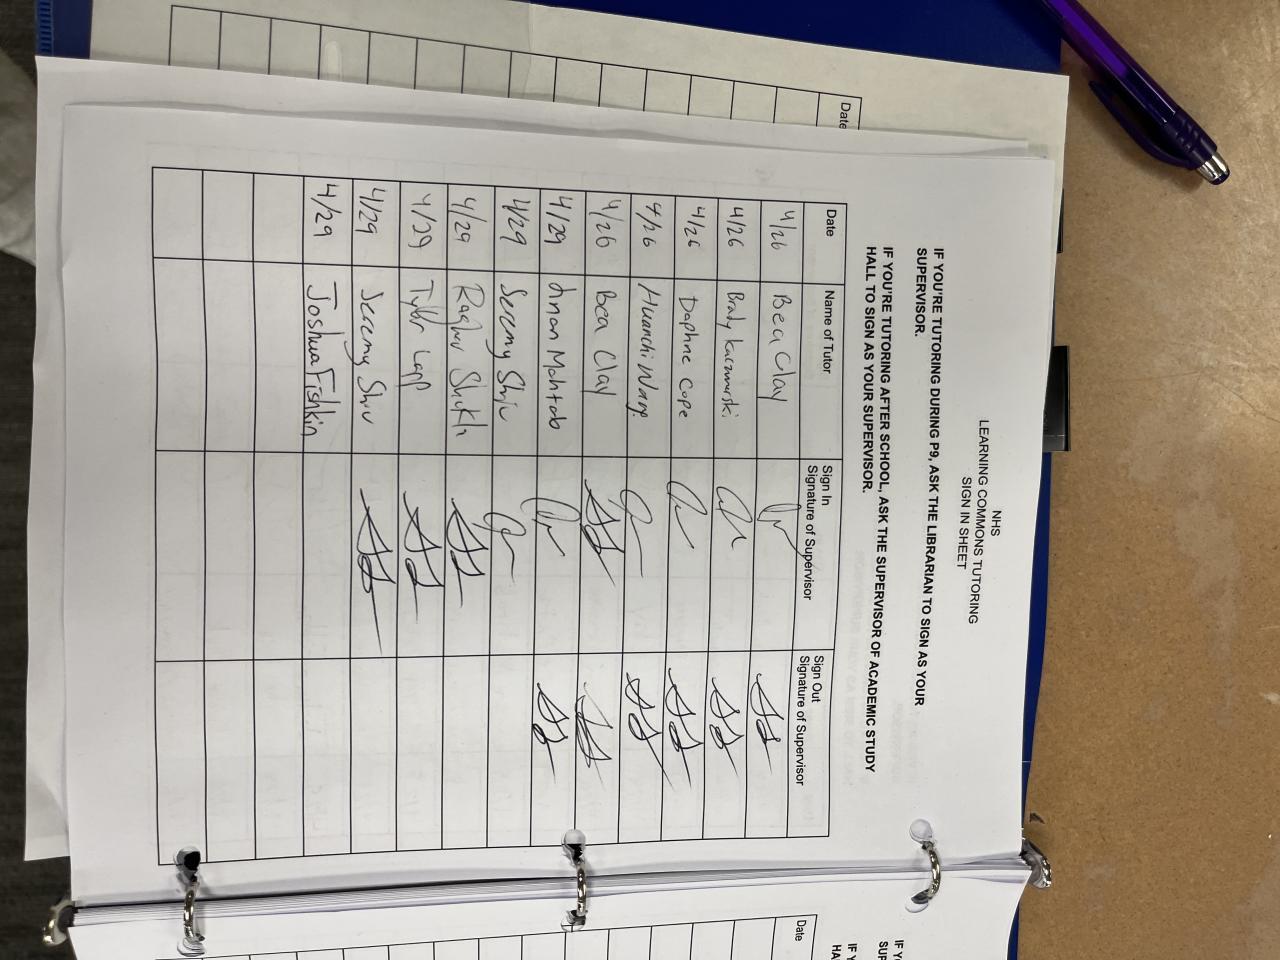 NHS
LEARNING COMMONS TUTORING
SIGN IN SHEET
IF YOU'RE TUTORING DURING P9, ASK THE LIBRARIAN TO SIGN AS YOUR
SUPERVISOR.
IF YOU'RE TUTORING AFTER SCHOOL, ASK THE SUPERVISOR OF ACADEMIC STUDY
HALL TO SIGN AS YOUR SUPERVISOR.
Date Name of Tutor Sign In Signature of Supervisor Sign Out Signature of Supervisor
4/26 Bea Clay
4/26 Brady Kaczmarski
4/26 Daphne Cope
4/26 Huanchi Wang
4/26 Bea Clay
4/29 Aman Mahtab
4/29 Jeremy Shiu
4/29 Raghav Shukla
4/29 Tyler Lapp
4/29 Jeremy Shiu
4/29 Joshua Fishkin
Date
IF Y
SUP
IF Y
HAL
Date